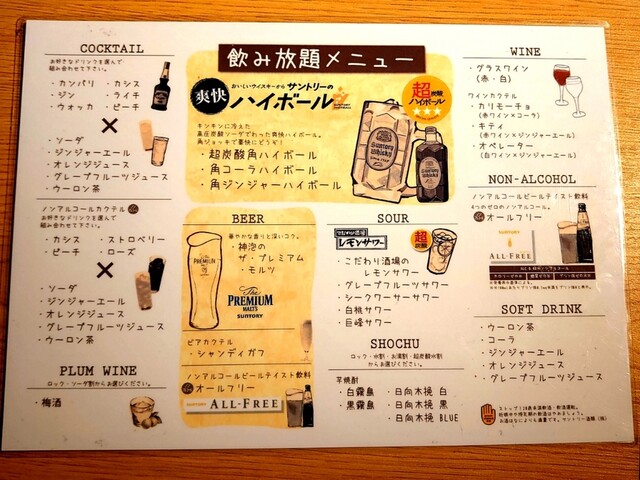 飲み放題メニュー
COCKTAIL
お好きなドリンクを選んで
組み合わせて下さい。
・カンパリ ・カシス
・ジン ・ライチ
・ウォッカ ・ピーチ
×
・ソーダ
・ジンジャーエール
・オレンジジュース
・グレープフルーツジュース
・ウーロン茶
ノンアルコールカクテル
お好きなドリンクを選んで
組み合わせて下さい。
・カシス ・ストロベリー
・ピーチ ・ローズ
×
・ソーダ
・ジンジャーエール
・オレンジジュース
・グレープフルーツジュース
・ウーロン茶
PLUM WINE
ロック・ソーダ割からお選びください。
・梅酒
爽快
おいしいウイスキーから サントリーの
ハイボール
超炭酸
ハイボール
★★★
キンキンに冷えた
高圧炭酸ソーダでわった爽快ハイボール。
角ジョッキで豪快にどうぞ!
・超炭酸角ハイボール
・角コーラハイボール
・角ジンジャーハイボール
Suntory
Whisky
BEER
華やかな香りと深いコク。
・神泡の
ザ・プレミアム
・モルツ
PREMIUM
The
PREMIUM
MALT'S
SUNTORY
ビアカクテル
・シャンディガフ
ノンアルコールビールテイスト飲料
オールフリー
ALL-FREE
SOUR
こだわり酒場の
レモンサワー
超
・こだわり酒場の
レモンサワー
・グレープフルーツサワー
・シークワーサーサワー
・白桃サワー
・巨峰サワー
SHOCHU
ロック・水割・お湯割・超炭酸水割
からお選びください。
芋焼酎
・白霧島 ・日向木挽 白
・黒霧島 ・日向木挽 黒
・日向木挽 BLUE
WINE
・グラスワイン
(赤・白)
ワインカクテル
・カリモーチョ
(赤ワイン×コーラ)
・キティ
(赤ワイン×ジンジャーエール)
・オペレーター
(白ワイン×ジンジャーエール)
NON-ALCOHOL
ノンアルコールビールテイスト飲料
4つのゼロのノンアルコール。
オールフリー
ALL-FREE
SOFT DRINK
・ウーロン茶
・コーラ
・ジンジャーエール
・オレンジジュース
・グレープフルーツジュース
ストップ!20歳未満飲酒・飲酒運転。
妊娠中や授乳期の飲酒はやめましょう。
お酒はなによりも適量です。サントリー酒類(株)